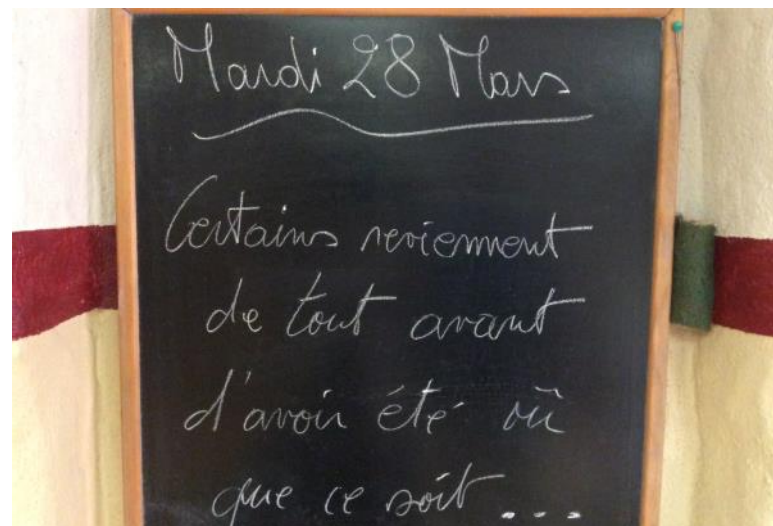 Mardi 28 Mars
Certains reviennent
de tout avant
d'avoir été où
que ce soit ...